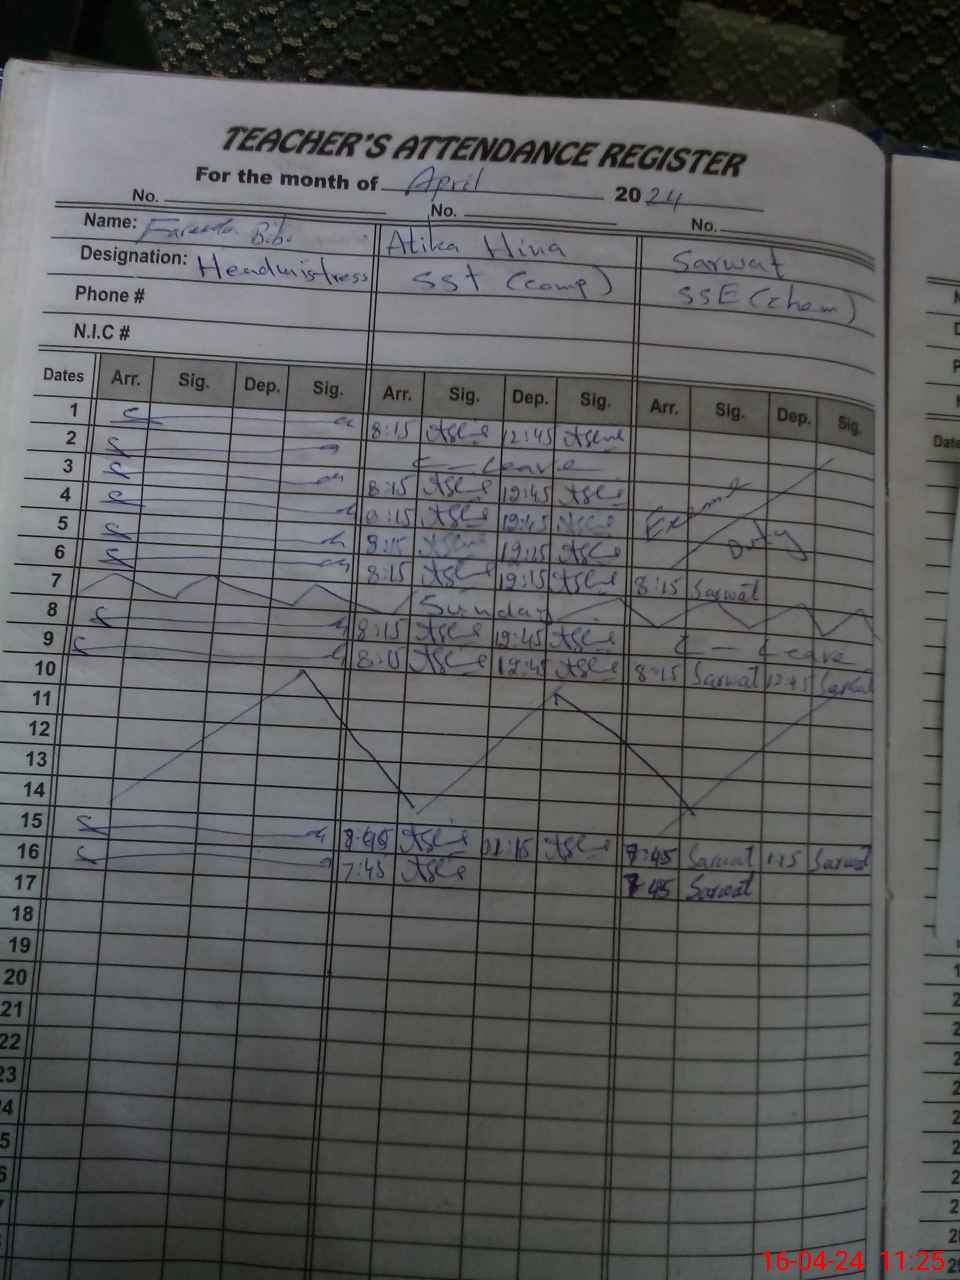 TEACHER'S ATTENDANCE REGISTER
For the month of April 2024
No. No. No.
Name: Bibi Atika Hina Sarwat
Designation: Headmistress SST (comp) SSE (chem)
Phone #
N.I.C #
Dates Arr. Sig. Dep. Sig. Arr. Sig. Dep. Sig. Arr. Sig. Dep. Sig.
1 8:15 12:45
2 C-Leave
3 8:15 12:45
4 8:15 12:45 Exams
5 8:15 12:15 Duty
6 8:15 12:15 8:15 Sarwat
7 Sunday
8 8:15 12:45 C-Leave
9 8:15 12:45 8:15 Sarwat 12:45 Sarwat
10
11
12
13
14
15 1:15 7:45 Sarwat 1:15 Sarwat
16 7:45 7:45 Sarwat
17
18
19
20
21
22
23
16-04-24 11:25